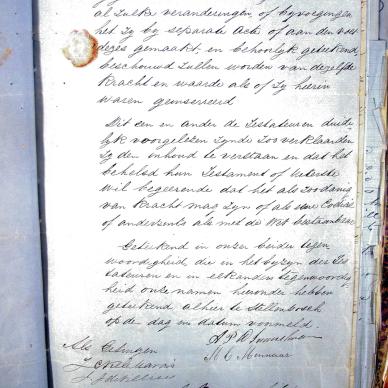 al zulke veranderingen, of byvoegingen
het zy by separate Acte of aan den voet
dezes gemaakt, en behoorlyk geteekend
beschouwd zullen worden van dezelfde
kracht en waarde als of zy hierin
waren geinsereerd
Dit een en ander de Testateuren duide
lyk voorgelezen zynde zoo verklaarden
zy den inhoud te verstaan en dat het
behelsd hun Testament of uiterste
wil begeerende dat het als zoodanig
van kracht mag zyn of als een Codicil
of anderzints als met de Wet bestaanbaar
Geteekend in onzer beider tegen
woordigheid, die in het byzyn der Tes
tateuren en in elkanders tegenwoordig
heid onze namen hieronder hebben
geteekend alhier te Stellenbosch
op den dag en datum voormeld.
Als Getuigen